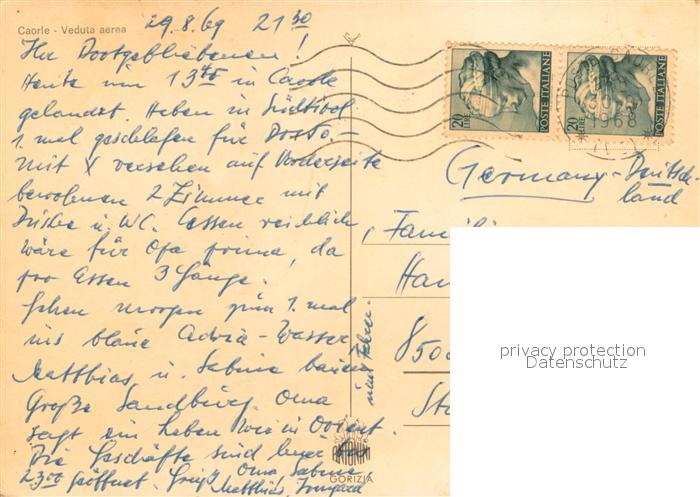 Caorle - Veduta aerea
29.8.69 21 30
Ihr Dortgebliebenen!
Heute um 13 in Caorle
gelandet. Haben in Südtirol
1 mal geschlafen für
mit X versehen auf Vorderseite
bewohnen 2 Zimmer mit
Dusche u. WC. Essen reichlich,
wäre für Opa prima, da
pro Essen 3 Gänge.
Gehen morgen zum 1. mal
ins blaue Adria-Wasser.
Matthias u. Sabine bauen
Große Sandburg. Oma
sagt ein Leben wie in Orient.
Die Geschäfte sind hier bis
23.00 geöffnet. Grüß Oma Sabine
Matthias, Irmgard
GORIZIA
20 LIRE
POSTE ITALIANE
20 LIRE
POSTE ITALIANE
Germany-Deutsch-
land
Familie
Han
850
privacy protection
Datenschutz